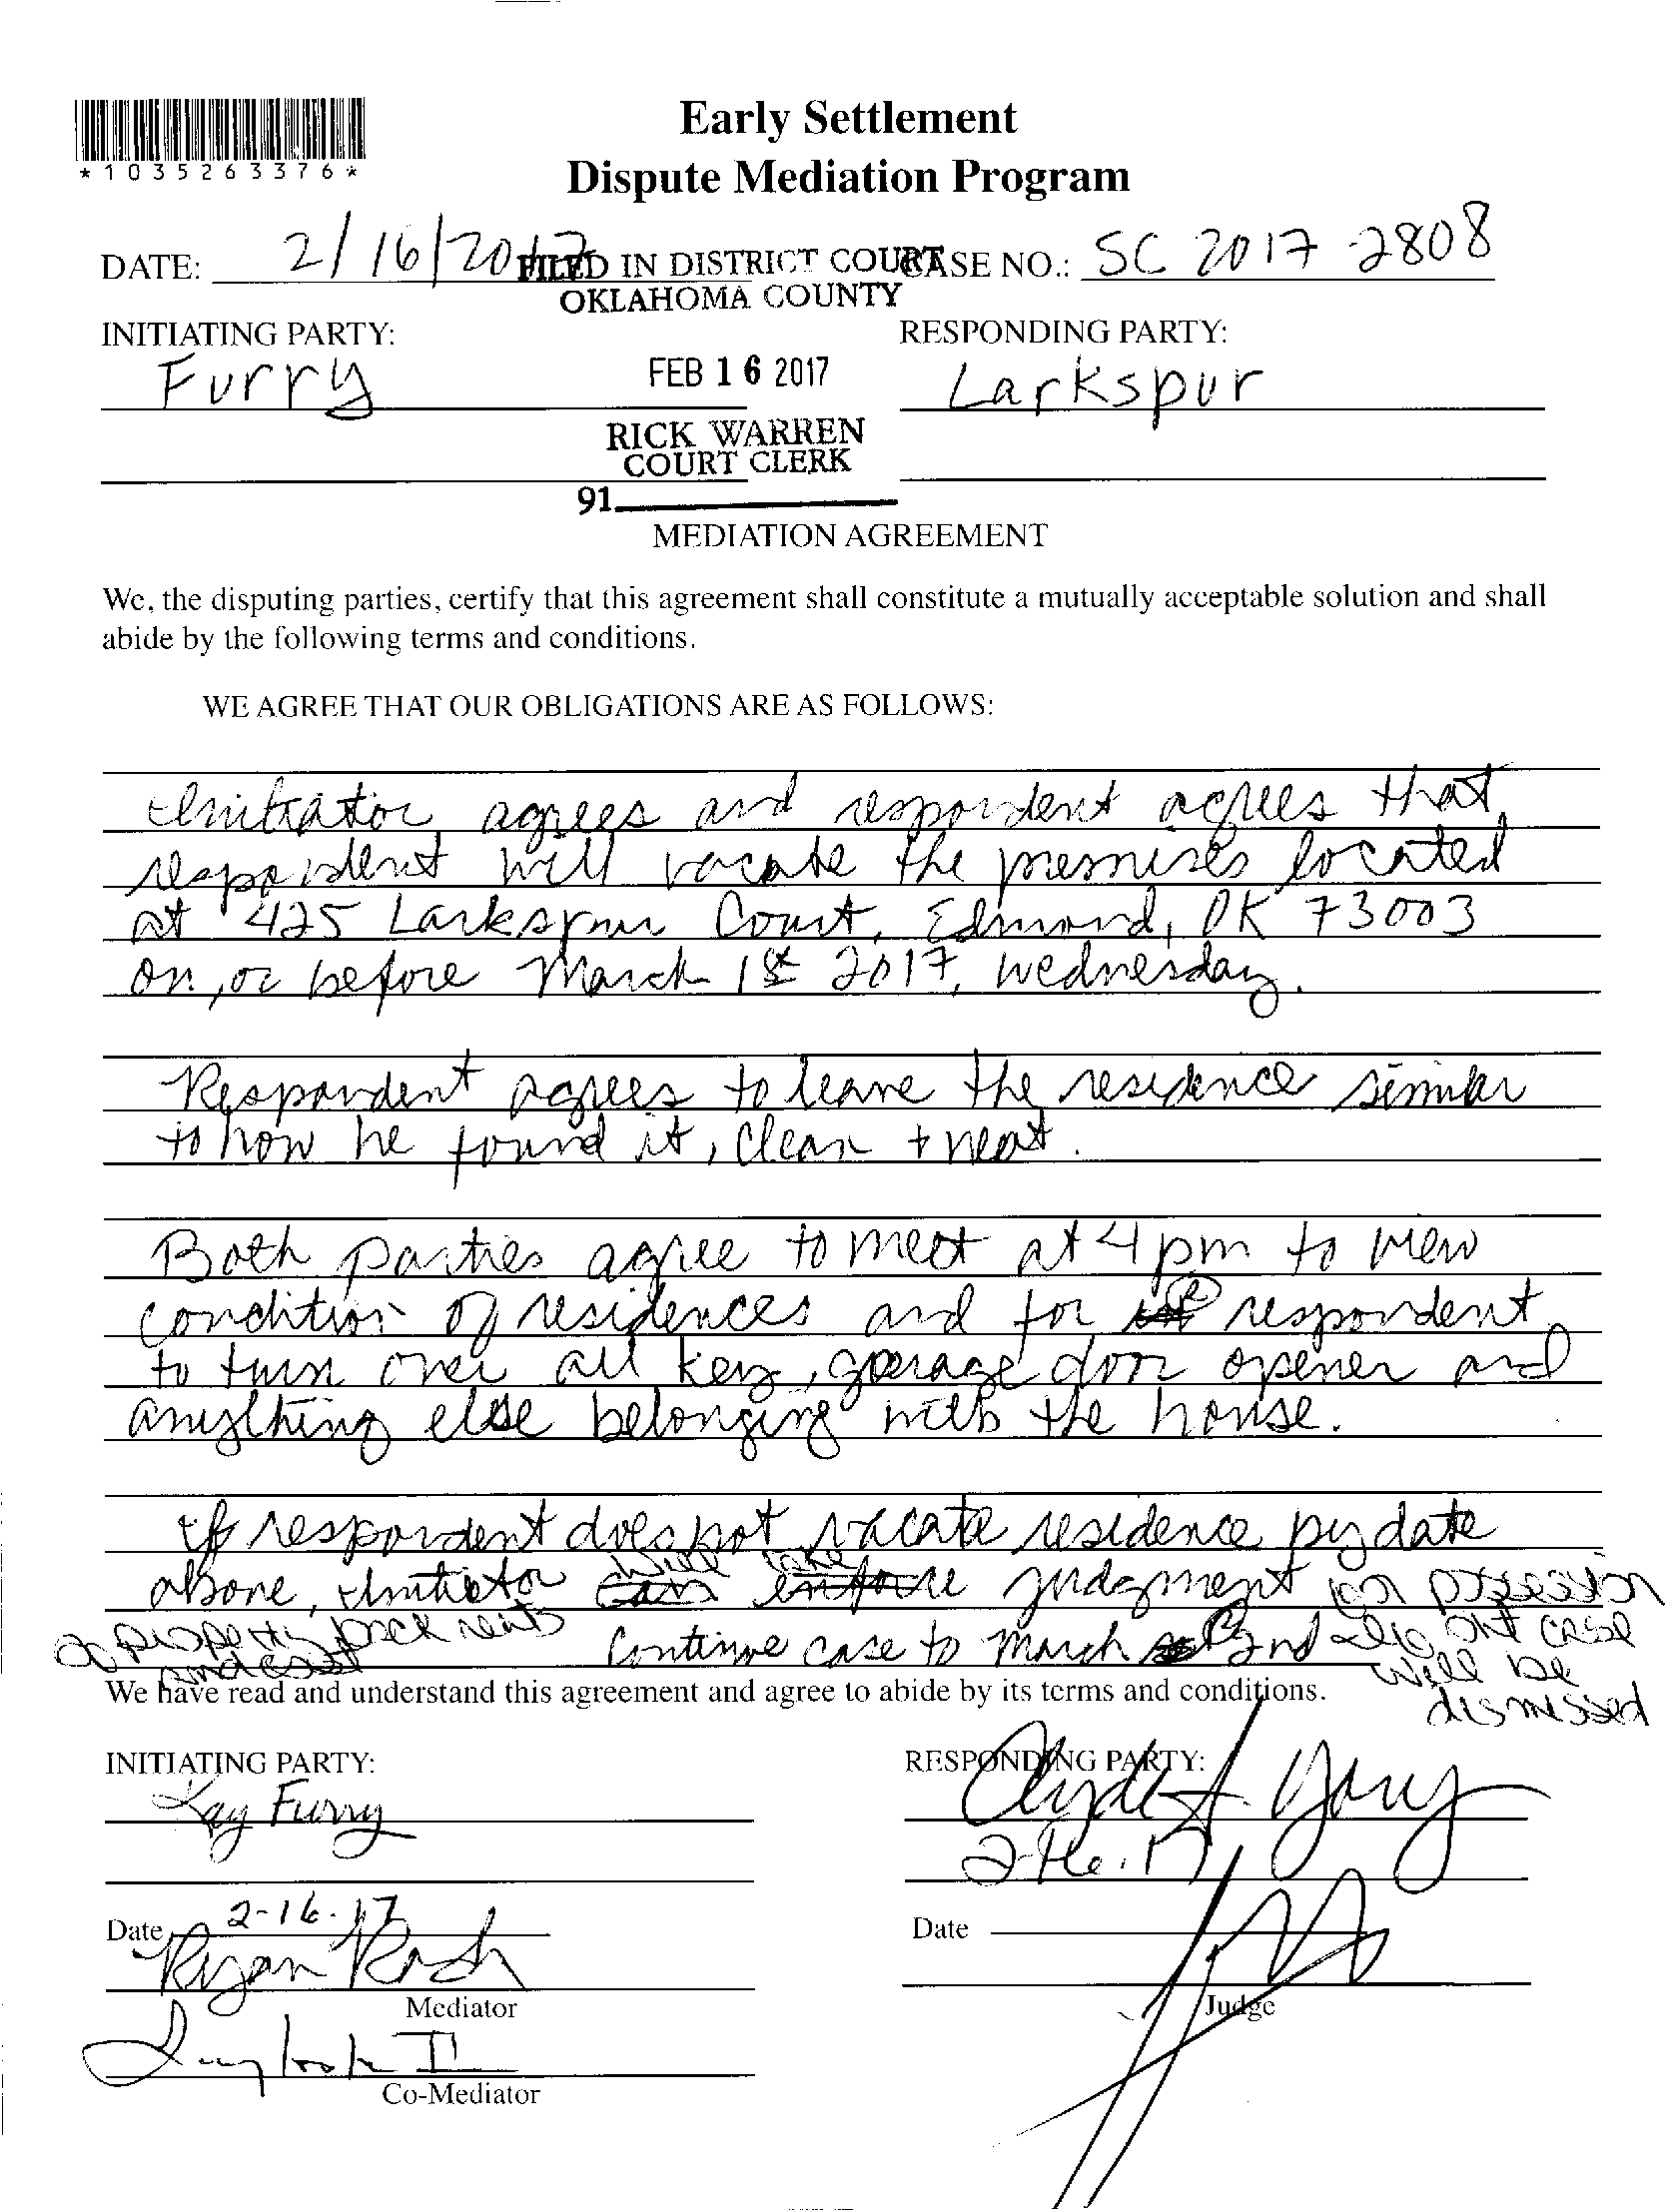 *1035263376*
Early Settlement
Dispute Mediation Program
DATE: 2/16/2017
FILED IN DISTRICT COURT
CASE NO.: SC 2017-2808
OKLAHOMA COUNTY
INITIATING PARTY:
RESPONDING PARTY:
Furry
FEB 16 2017
Larkspur
RICK WARREN
COURT CLERK
91
MEDIATION AGREEMENT
We, the disputing parties, certify that this agreement shall constitute a mutually acceptable solution and shall
abide by the following terms and conditions.
WE AGREE THAT OUR OBLIGATIONS ARE AS FOLLOWS:
Initiator agrees and respondent agrees that
respondent will vacate the premises located
at 425 Larkspur Court, Edmond, OK 73003
on, or before March 1st 2017, Wednesday.
Respondent agrees to leave the residence similar
to how he found it, clean + neat.
Both parties agree to meet at 4 pm to view
condition of residences and for respondent
to turn over all keys, garage door opener and
anything else belonging with the house.
If respondent does not vacate residence by date
above, Initiator will take judgment for possession
of property back rents and cost
Continue case to March 2nd
case
will be
dismissed
We have read and understand this agreement and agree to abide by its terms and conditions.
INITIATING PARTY:
RESPONDING PARTY:
Kay Furry
2-16-17
Date 2-16-17
Date
Ryan
Mediator
Judge
II
Co-Mediator